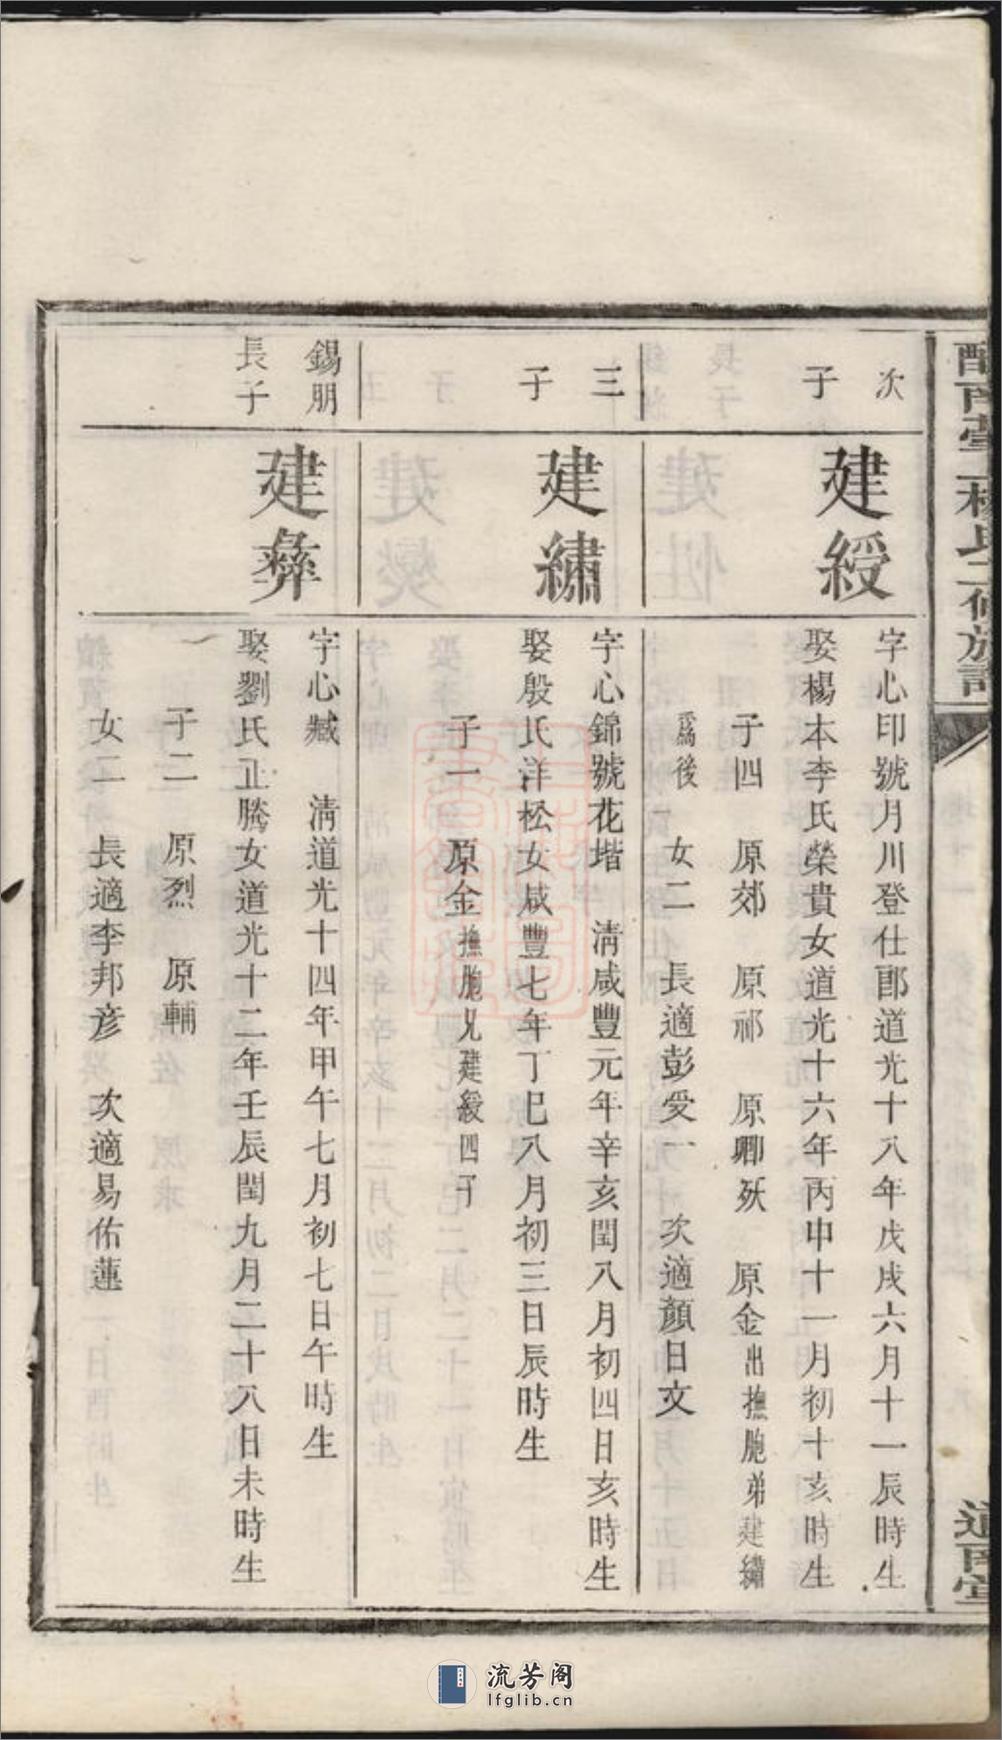 次
子
建綬
字心印號月川登仕郎道光十八年戊戌六月十一辰時生
娶楊本李氏榮貴女道光十六年丙申十一月初十亥時生
子四　原郊　原祁　原卿殀　原金出撫胞弟建繡
爲後　女二　長適彭受一　次適顏日文
三
子
建繡
字心錦號花堦　淸咸豐元年辛亥閏八月初四日亥時生
娶殷氏洋松女咸豐七年丁巳八月初三日辰時生
子一　原金撫胞兄建綬四子
錫朋
長子
建彝
字心臧　淸道光十四年甲午七月初七日午時生
娶劉氏正騰女道光十二年壬辰閏九月二十八日未時生
子二　原烈　原輔
女二　長適李邦彥　次適易佑蓮
流芳阁
lfglib.cn